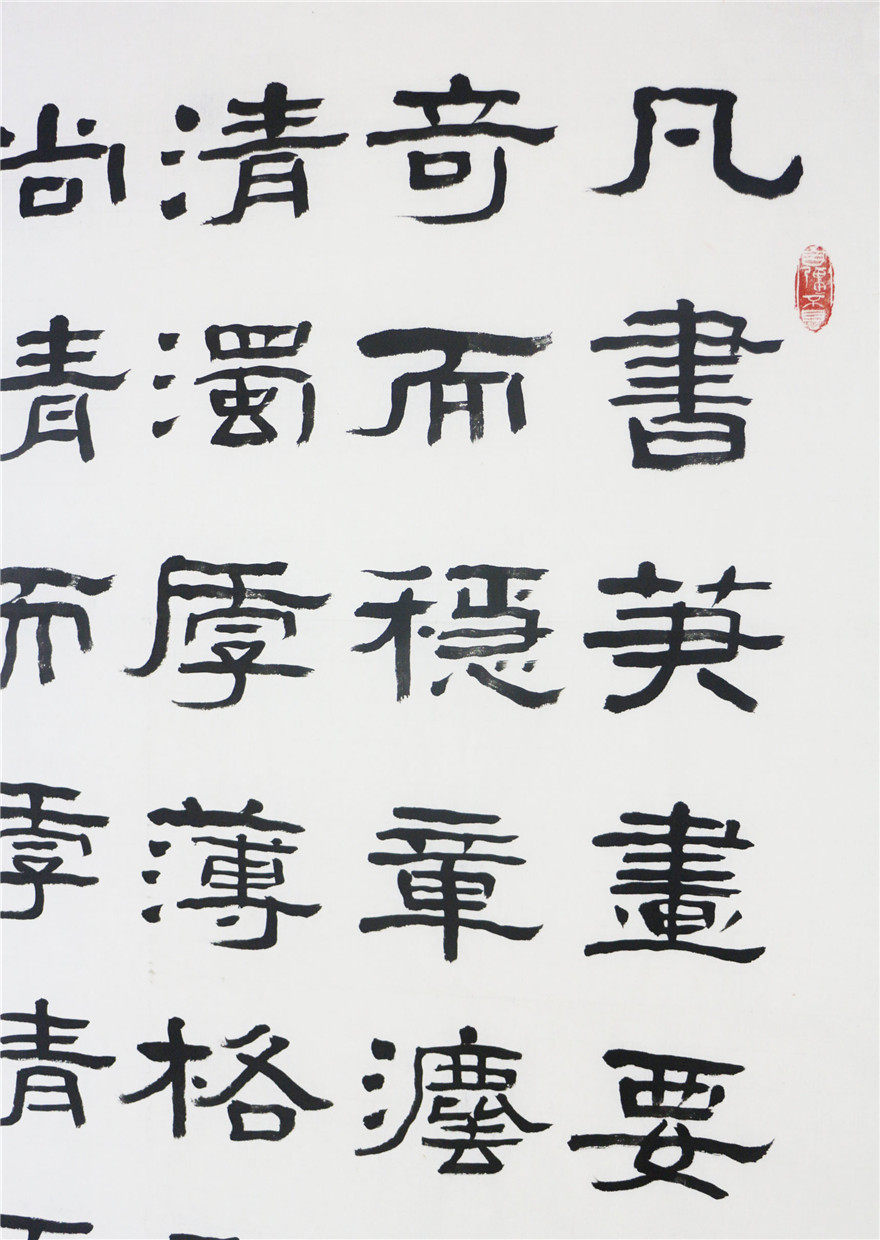 凡書筆畫要
奇而穩章灋
清濁厚薄格
尚清而厚清